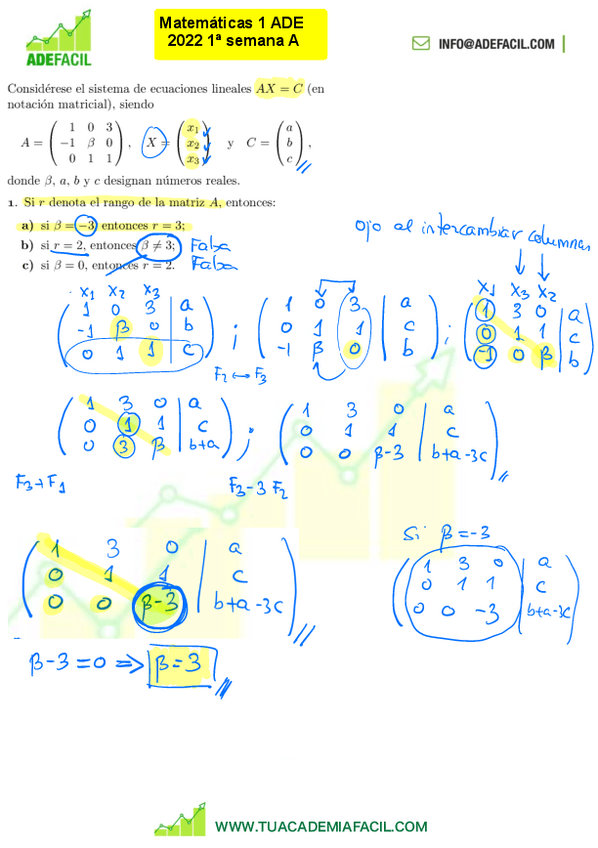 ADEFACIL
Matemáticas 1 ADE
2022 1ª semana A
INFO@ADEFACIL.COM
Considérese el sistema de ecuaciones lineales AX = C (en
notación matricial), siendo
A = ( 1 0 3 ; -1 β 0 ; 0 1 1 ), X = ( x₁ ; x₂ ; x₃ ) y C = ( a ; b ; c ),
donde β, a, b y c designan números reales.
1. Si r denota el rango de la matriz A, entonces:
a) si β = -3, entonces r = 3;
b) si r = 2, entonces β ≠ 3; Falsa
c) si β = 0, entonces r = 2. Falsa
ojo al intercambiar columnas
x₁ x₂ x₃
x₁ x₃ x₂
1 0 3 | a
-1 β 0 | b ;
0 1 1 | c
F₂ ↔ F₃
1 0 3 | a
0 1 1 | c ;
-1 β 0 | b
1 3 0 | a
0 1 1 | c
-1 0 β | b
1 3 0 | a
0 1 1 | c ;
0 3 β | b+a
F₃+F₁
1 3 0 | a
0 1 1 | c
0 0 β-3 | b+a-3c
F₃-3F₂
1 3 0 | a
0 1 1 | c
0 0 β-3 | b+a-3c
Si β=-3
1 3 0 | a
0 1 1 | c
0 0 -3 | b+a-3c
β-3=0 => β=3
WWW.TUACADEMIAFACIL.COM